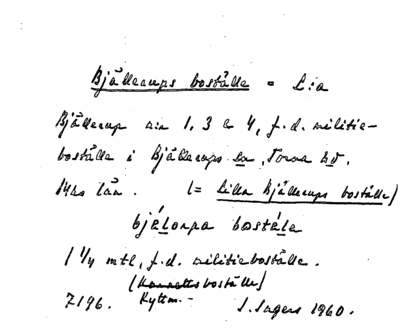 Bjällerups boställe = L:a
Bjällerup nr 1, 3 & 4, f.d. militie-
boställe i Bjällerups sn, Torna hd.
Mhs län. (= Lilla Bjällerups boställe)
bjälorpa bostäla
1 1/4 mtl, f.d. militieboställe.
(Kornettsboställe)
7196. Ryttm.- S. Ingers 1960.